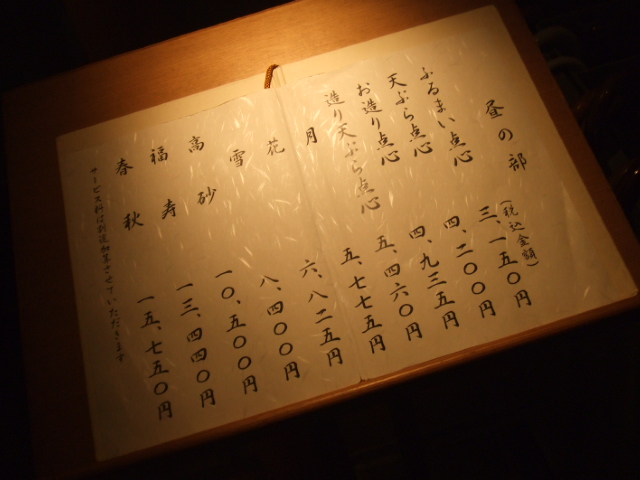 昼の部
(税込金額)
ふるまい点心 三、一五〇円
天ぷら点心 四、二〇〇円
お造り点心 四、九三五円
造り天ぷら点心 五、四六〇円
月 五、七七五円
花 六、八二五円
雪 八、四〇〇円
高砂 一〇、五〇〇円
福寿 一三、四四〇円
春秋 一五、七五〇円
サービス料は別途加算させていただきます